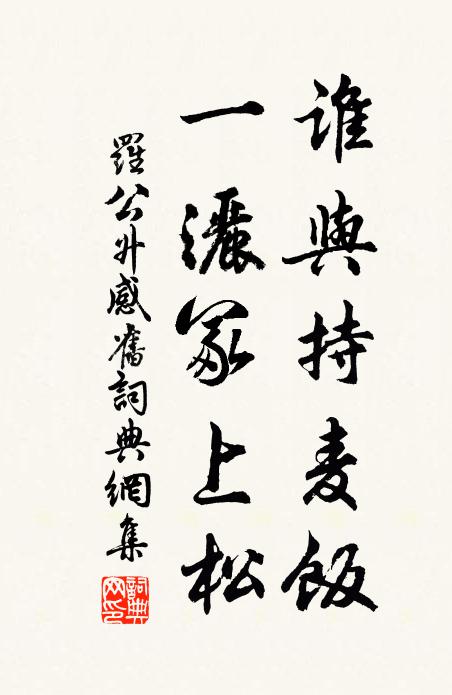 誰與持麦飯
一灑冢上松
羅公升感舊詞典網集
詞典网印